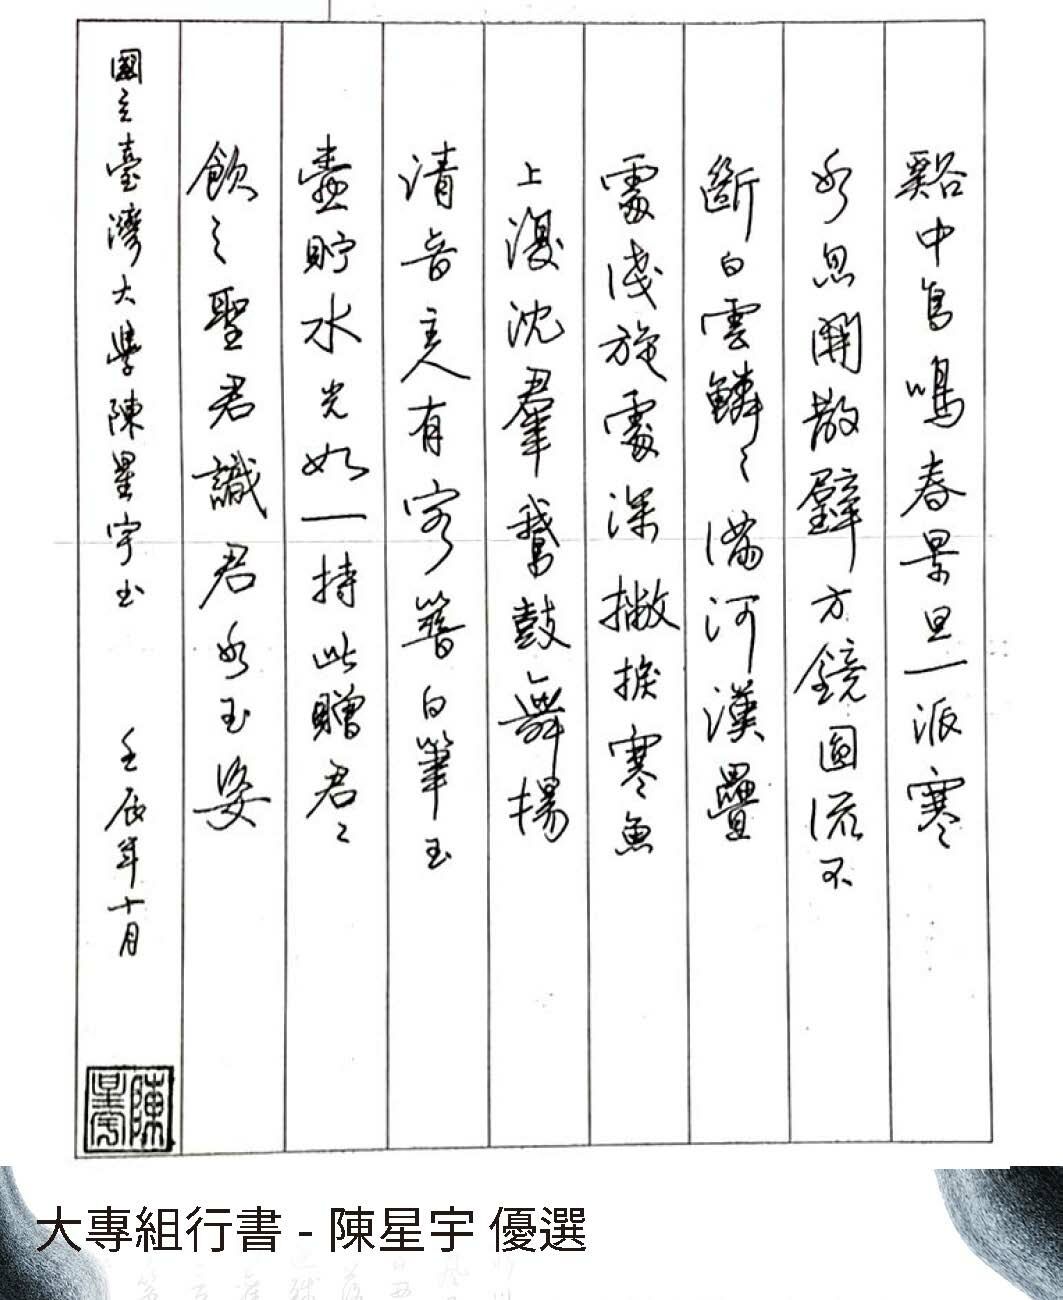 谿中鳥鳴春景旦一派寒
水忽開散璧方鏡圓流不
斷白雲鱗〻滿河漢疊
處淺旋處深撇捩寒魚
上復沈羣鵝鼓舞揚
清音主人有客簪白筆玉
壺貯水光如一持此贈君〻
飲之聖君識君冰玉姿
國立臺灣大學陳星宇書
壬辰年十月
陳星宇
大專組行書 - 陳星宇 優選